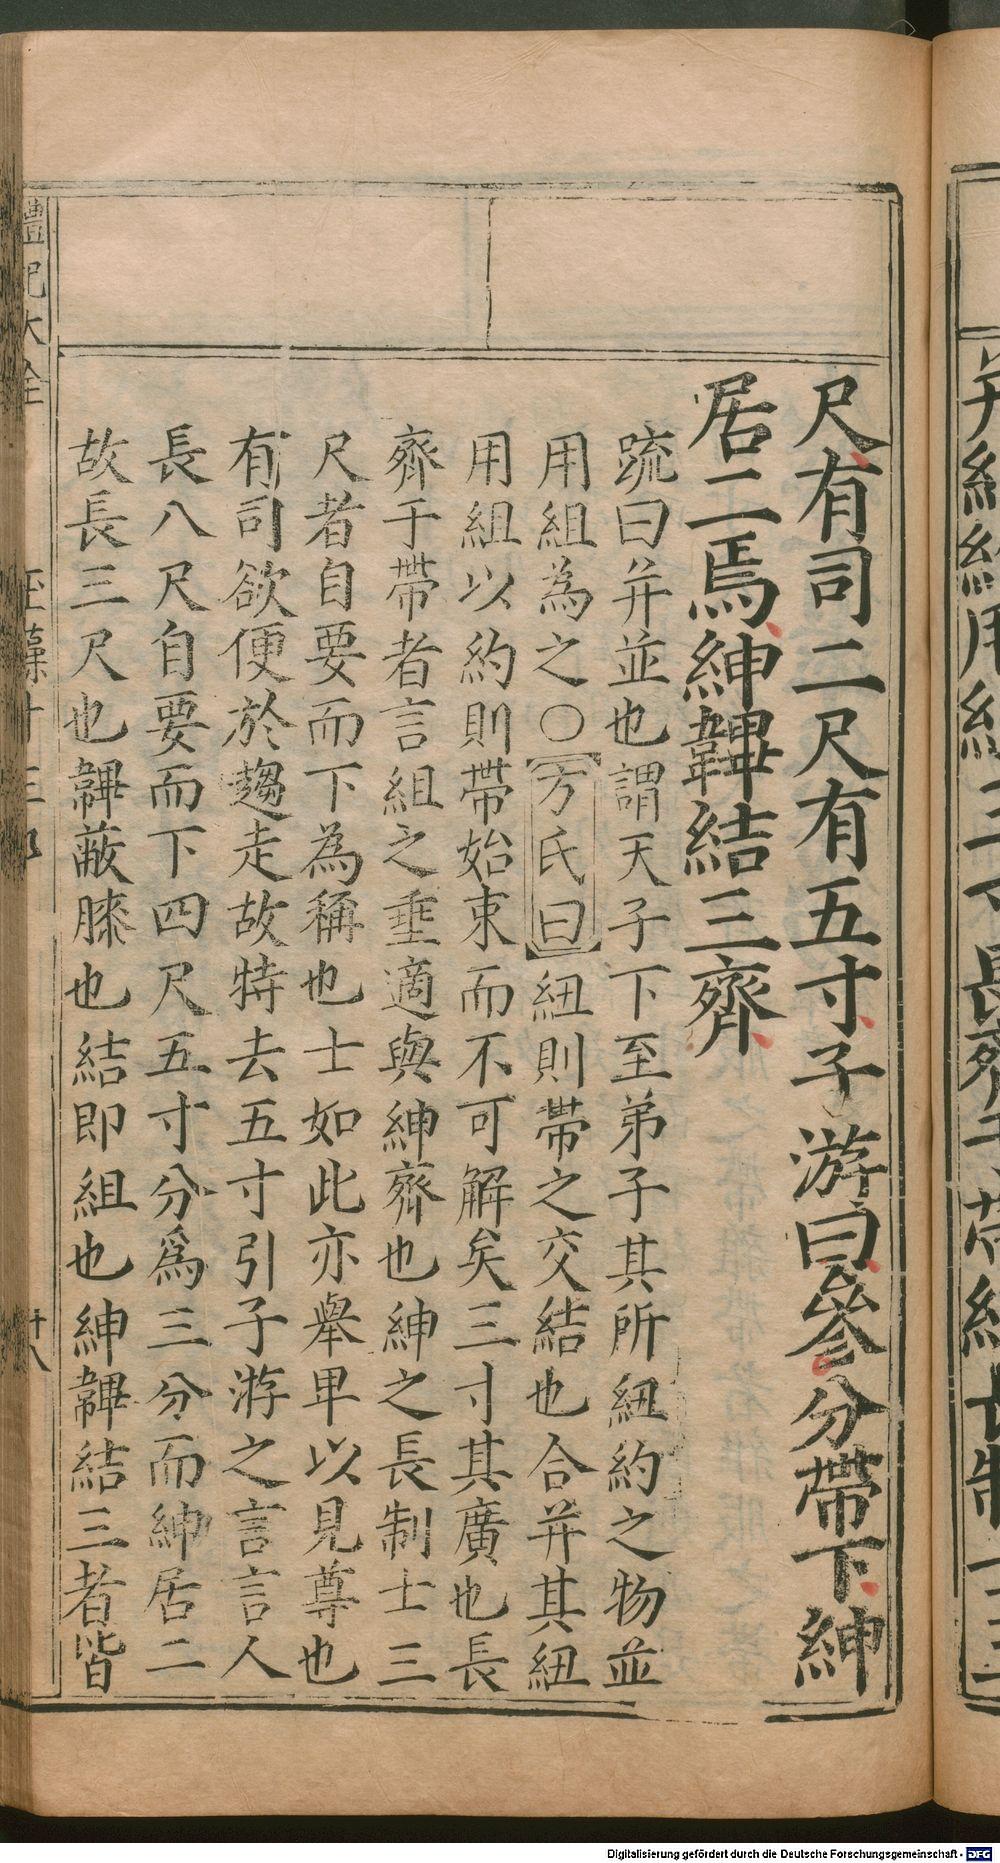 尺有司二尺有五寸子游曰參分帶下紳
居二焉紳韠結三齊
疏曰并並也謂天子下至弟子其所紐約之物並
用組為之〇方氏曰紐則帶之交結也合并其紐
用組以約則帶始束而不可解矣三寸其廣也長
齊于帶者言組之垂適與紳齊也紳之長制士三
尺者自要而下為稱也士如此亦舉卑以見尊也
有司欲便於趨走故特去五寸引子游之言言人
長八尺自要而下四尺五寸分爲三分而紳居二
故長三尺也韠蔽膝也結即組也紳韠結三者皆
禮記大全
玉藻十三
十八
Digitalisierung gefördert durch die Deutsche Forschungsgemeinschaft - DFG